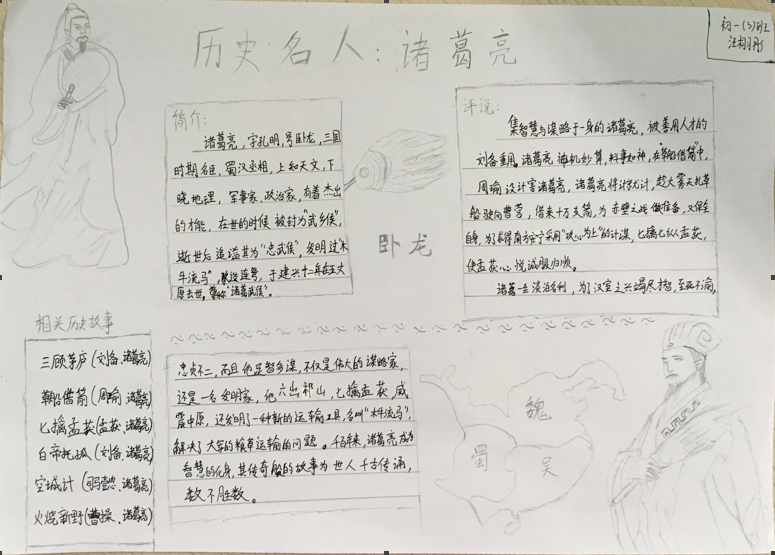 历史名人：诸葛亮
初一(3)班
简介：
诸葛亮，字孔明，号卧龙，三国
时期名臣，蜀汉丞相，上知天文，下
晓地理，军事家、政治家，有着杰出
的才能，在世的时候被封为“武乡侯”，
逝世后追谥其为“忠武侯”，发明过“木
牛流马”，改造连弩，于建兴十二年在五丈
原去世。尊称“诸葛武侯”。
卧龙
评说：
集智慧与谋略于一身的诸葛亮，被善用人才的
刘备重用。诸葛亮神机妙算，料事如神，在“草船借箭”中，
周瑜设计害诸葛亮，诸葛亮将计就计，趁大雾天扎草
船驶向曹营，借来十万支箭，为赤壁之战做准备，又保全
自身，为了求得南方安宁采用“攻心为上”的计谋，七擒七纵孟获，
使孟获心悦诚服归顺。
诸葛一生淡泊名利，为了汉室之兴竭尽才智，至死不渝，
相关历史故事
三顾茅庐(刘备、诸葛亮)
草船借箭(周瑜 诸葛亮)
七擒孟获(孟获、诸葛亮)
白帝托孤(刘备、诸葛亮)
空城计(司马懿、诸葛亮)
火烧新野(曹操、诸葛亮)
忠贞不二，而且他足智多谋，不仅是伟大的谋略家，
还是一名发明家，他六出祁山，七擒孟获，威
震中原，还发明了一种新的运输工具，名叫“木牛流马”，
解决了大军的粮草运输的问题。千百年来，诸葛亮成为
智慧的化身，其传奇般的故事为世人千古传诵，
数不胜数。
魏
蜀
吴